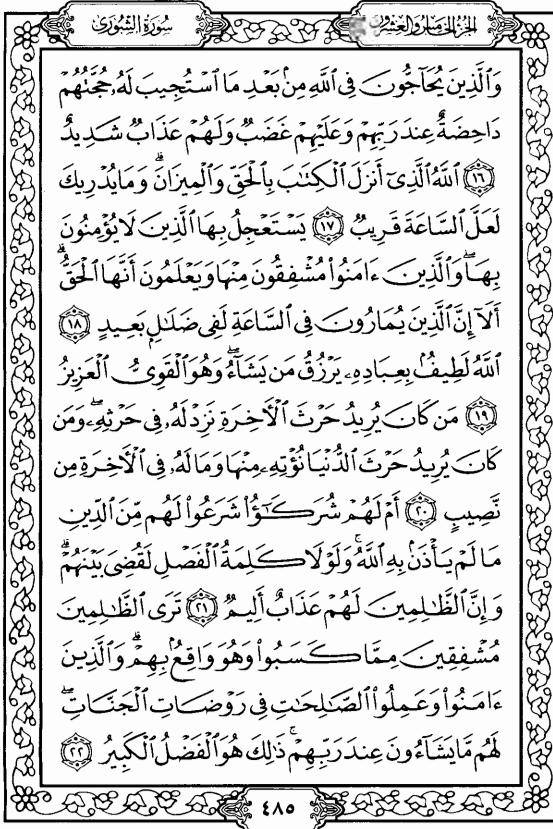 الجزء الخامس والعشرون
سورة الشورى
وَٱلَّذِينَ يُحَآجُّونَ فِى ٱللَّهِ مِنۢ بَعْدِ مَا ٱسْتُجِيبَ لَهُۥ حُجَّتُهُمْ
دَاحِضَةٌ عِندَ رَبِّهِمْ وَعَلَيْهِمْ غَضَبٌ وَلَهُمْ عَذَابٌ شَدِيدٌ
١٦ ٱللَّهُ ٱلَّذِىٓ أَنزَلَ ٱلْكِتَٰبَ بِٱلْحَقِّ وَٱلْمِيزَانَۗ وَمَا يُدْرِيكَ
لَعَلَّ ٱلسَّاعَةَ قَرِيبٌ ١٧ يَسْتَعْجِلُ بِهَا ٱلَّذِينَ لَا يُؤْمِنُونَ
بِهَاۖ وَٱلَّذِينَ ءَامَنُوا۟ مُشْفِقُونَ مِنْهَا وَيَعْلَمُونَ أَنَّهَا ٱلْحَقُّۗ
أَلَآ إِنَّ ٱلَّذِينَ يُمَارُونَ فِى ٱلسَّاعَةِ لَفِى ضَلَٰلٍۭ بَعِيدٍ ١٨
ٱللَّهُ لَطِيفٌۢ بِعِبَادِهِۦ يَرْزُقُ مَن يَشَآءُۖ وَهُوَ ٱلْقَوِىُّ ٱلْعَزِيزُ
١٩ مَن كَانَ يُرِيدُ حَرْثَ ٱلْءَاخِرَةِ نَزِدْ لَهُۥ فِى حَرْثِهِۦۖ وَمَن
كَانَ يُرِيدُ حَرْثَ ٱلدُّنْيَا نُؤْتِهِۦ مِنْهَا وَمَا لَهُۥ فِى ٱلْءَاخِرَةِ مِن
نَّصِيبٍ ٢٠ أَمْ لَهُمْ شُرَكَٰٓؤُا۟ شَرَعُوا۟ لَهُم مِّنَ ٱلدِّينِ
مَا لَمْ يَأْذَنۢ بِهِ ٱللَّهُۚ وَلَوْلَا كَلِمَةُ ٱلْفَصْلِ لَقُضِىَ بَيْنَهُمْۗ
وَإِنَّ ٱلظَّٰلِمِينَ لَهُمْ عَذَابٌ أَلِيمٌ ٢١ تَرَى ٱلظَّٰلِمِينَ
مُشْفِقِينَ مِمَّا كَسَبُوا۟ وَهُوَ وَاقِعٌۢ بِهِمْۗ وَٱلَّذِينَ
ءَامَنُوا۟ وَعَمِلُوا۟ ٱلصَّٰلِحَٰتِ فِى رَوْضَاتِ ٱلْجَنَّاتِۖ
لَهُم مَّا يَشَآءُونَ عِندَ رَبِّهِمْۚ ذَٰلِكَ هُوَ ٱلْفَضْلُ ٱلْكَبِيرُ ٢٢
٤٨٥